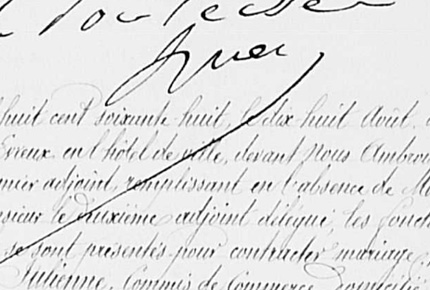 signer
huit cent soixante huit, le dix huit Août,
Evreux en l'hôtel de ville, devant Nous Ambroi
mier adjoint, remplissant en l'absence de M
sieur le deuxième adjoint délégué, les fonct
se sont présentés pour contracter mariage,
Julienne, Commis de Commerce, domicilié